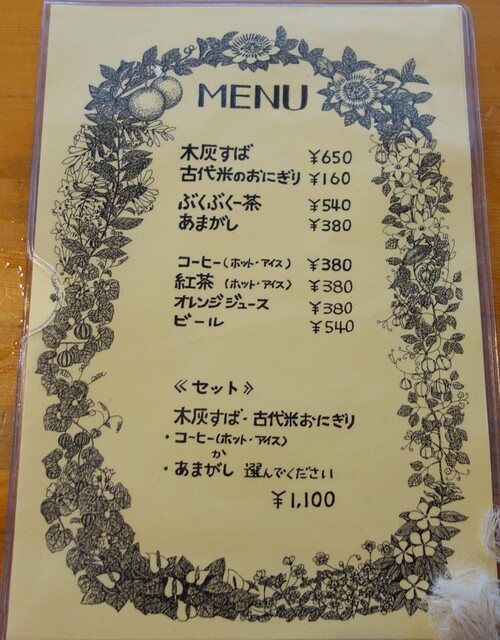 MENU
木灰すば ¥650
古代米のおにぎり ¥160
ぶくぶくー茶 ¥540
あまがし ¥380
コーヒー(ホット・アイス) ¥380
紅茶 (ホット・アイス) ¥380
オレンジジュース ¥380
ビール ¥540
≪セット≫
木灰すば・古代米おにぎり
・コーヒー(ホット・アイス)
か
・あまがし 選んでください
¥1,100